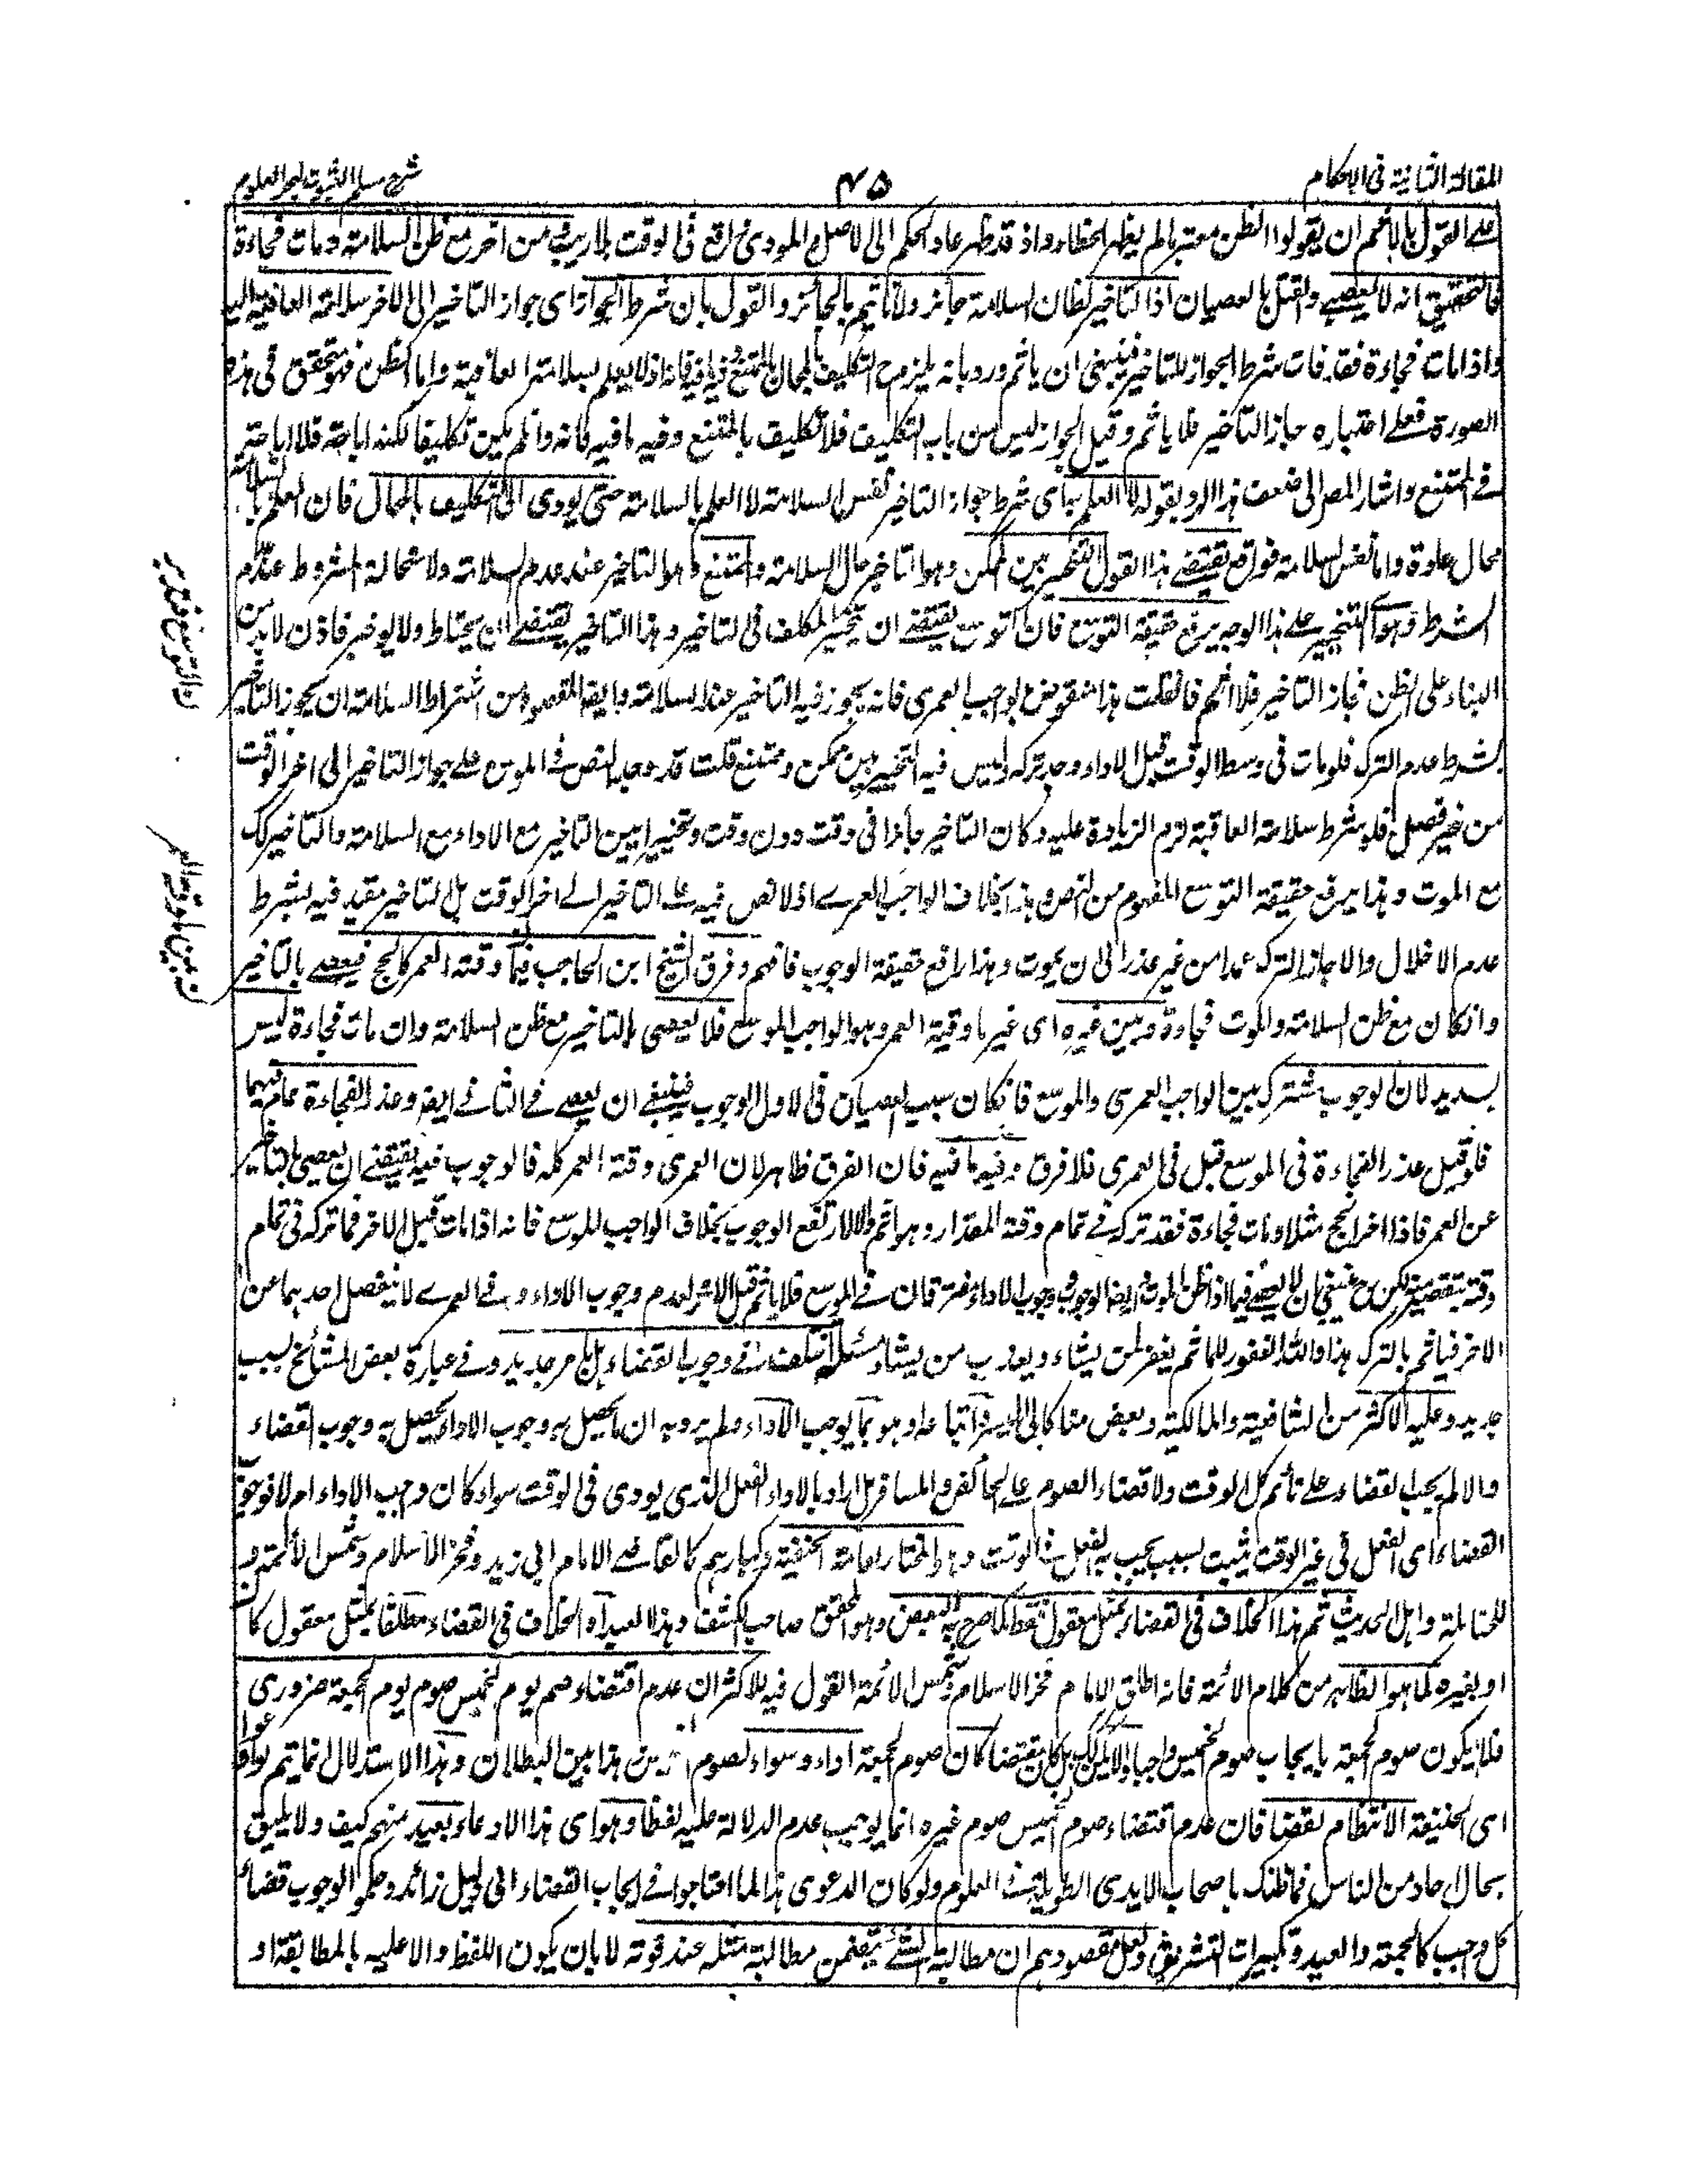 المقالة الثانية فى الاحكام
٤٥
شرح مسلم الثبوت لبحر العلوم
على القول بالاثم ان يقولوا الظن معتبر ما لم يظهر الخطاء واذ قد ظهر عاد الحكم الى الاصل المودى وقع فى الوقت بلا ريب من اخر مع ظن السلامة ومات فجاءة
فالتحقيق انه لا يعصى والقتل بالعصيان اذ التاخير لظان السلامة جائز ولا تاثيم بالجائز والقول بان شرط الجواز اى جواز التاخير الى الاخر سلامة العاقبة اليه
واذا مات فجاءة فقد فات شرط الجواز للتاخير فينبغى ان ياثم ورد بانه يلزم ح التكليف بالمحال الممتنع فيه اذ لا يعلم بسلامة العاقبة واما الظن فهو متحقق فى هذه
الصورة فعلى اعتباره جاز التاخير فلا ياثم وقيل الجواز ليس من باب التكليف فلا تكليف بالممتنع وفيه ما فيه فانه وان لم يكن تكليفا لكنه اباحة فلا اباحة
فى الممتنع واشار المصر الى ضعف هذا الرد بقوله لا العلم بها اى شرط جواز التاخير نفس السلامة لا العلم بالسلامة حتى يودى الى التكليف بالمحال فان العلم بالسلامة
محال عادة واما نفس السلامة فواقع يقتضى هذا القول التخيير بين الممكن وهو التاخير حال السلامة والممتنع وهو التاخير عند عدم السلامة ولاستحالة المشروط عند عدم
الشرط وهو اى التخيير على هذا الوجه يرفع حقيقة التوسع فان التوسع يقتضى ان يخير المكلف فى التاخير وهذا التاخير يقتضى ان يحتاط ولا يوخر فاذن لا بد من
البناء على الظن فجاز التاخير فلا اثم فان قلت هذا منقوض بالواجب العمرى فانه يجوز فيه التاخير عند السلامة وايضا المقصود من اشتراط السلامة ان يجوز التاخير
بشرط عدم الترك فلو مات فى وسط الوقت قبل الاداء وجد تركه وليس فيه التخيير بين ممكن وممتنع قلت قد وجد النص فى الموسع على جواز التاخير الى اخر الوقت
من غير فصل فلو شرط سلامة العاقبة لزم الزيادة عليه وكان التاخير جائزا فى وقت دون وقت وتخييرا بين التاخير مع الاداء مع السلامة والتاخير كك
مع الموت وهذا يرفع حقيقة التوسع المفهوم من النص وهذا بخلاف الواجب العمرى اذ لا نص فيه على التاخير الى اخر الوقت بل التاخير مقيد فيه بشرط
عدم الاخلال والا جاز الترك عمدا من غير عذر الى ان يموت وهذا رافع حقيقة الوجوب فافهم وفرق الشيخ ابن الحاجب فيما وقته العمر كالحج فيعصى بالتاخير
وان كان مع ظن السلامة والموت فجاءة وبين غيره اى غير ما وقته العمر وهو الواجب الموسع فلا يعصى بالتاخير مع ظن السلامة وان مات فجاءة ليس
بسديد لان الوجوب مشترك بين الواجب العمرى والموسع فان كان سبب العصيان فى الاول الوجوب فينبغى ان يعصى فى الثانى ايضا وعذر الفجاءة عام فيهما
فلو قبل عذر الفجاءة فى الموسع قبل فى العمرى فلا فرق وفيه ما فيه فان الفرق ظاهر لان العمرى وقته العمر كله فالوجوب فيه يقتضى ان يعصى بالتاخير
عن العمر فاذا اخر الحج مثلا ومات فجاءة فقد تركه فى تمام وقته المقدار وهو اثم والا لارتفع الوجوب بخلاف الواجب الموسع فانه اذا مات قبل الاخر فما تركه فى تمام
وقته بتقصير لكن ح ينبغى ان لا يعصى فيما اذا ظن الموت ايضا الوجوب وجوب الاداء مفترقان فى الموسع فلا ياثم قبل الاخر لعدم وجوب الاداء وفى العمرى لا ينفصل احدهما عن
الاخر فياثم بالترك هذا والله الغفور للماثم يغفر لمن يشاء ويعذب من يشاء مسئلة اختلف فى وجوب القضاء هل بامر جديد وفى عبارة بعض المشائخ بسبب
جديد وعليه الاكثر من الشافعية والمالكية وبعض منا كابى اليسر واتباعه او هو بما يوجب الاداء ولم يرد به ان ما يحصل به وجوب الاداء يحصل به وجوب القضاء
والا لم يجب القضاء على نائم كل الوقت ولا قضاء الصوم على الحائض والمسافر بل اراد بالاداء الفعل الذى يودى فى الوقت سواء كان وجب الاداء ام لا فوجوب
القضاء اى الفعل فى غير الوقت يثبت بسبب يجب به الفعل فى الوقت وهو المختار لعامة الحنفية وكبارهم كالقاضى الامام ابى زيد وفخر الاسلام وشمس الائمة و
للحنابلة واهل الحديث ثم هذا الخلاف فى القضاء بمثل معقول فقط كما صرح به البعض وهو المحقق صاحب الكشف وهذا لبعيد او الخلاف فى القضاء مطلقا بمثل معقول كان
او بغيره كما هو الظاهر من كلام الائمة فانه اطلق الامام فخر الاسلام وشمس الائمة القول فيه للاكثر ان عدم اقتضاء صم يوم الخميس صوم يوم الجمعة ضرورى
فلا يكون صوم الجمعة بايجاب صوم الخميس واجبا والا لم يكن بل كان مقتضيا كان صوم الجمعة اداء وسواء لصوم الخميس هذا بين البطلان وهذا الاستدلال انما يتم لو ادعوا
اى الحنفية الانتظام لفظا فان عدم اقتضاء صوم الخميس صوم غيره انما يوجب عدم الدلالة عليه لفظا وهو اى هذا الادعاء بعيد منهم كيف ولا يليق
بحال احاد من الناس فما ظنك باصحاب الايدى الطويلة فى العلوم ولو كان الدعوى هذا لما احتاجوا فى ايجاب القضاء الى دليل زائد وحكموا بوجوب قضاء
كل واجب كالجمعة والعيد وتكبيرات التشريق ولعل مقصودهم ان مطالبة الشئ يتضمن مطالبة مثله عند فوته لا بان يكون اللفظ دالا عليه بالمطابقة او